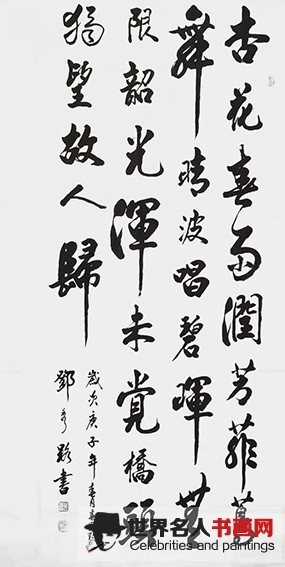 杏花春雨潤芳菲
舞晴波唱碧暉無
限韶光渾未覺橋頭
獨望故人歸
歲次庚子年春月
鄧 書
世界名人书画网
Celebrities and paintings